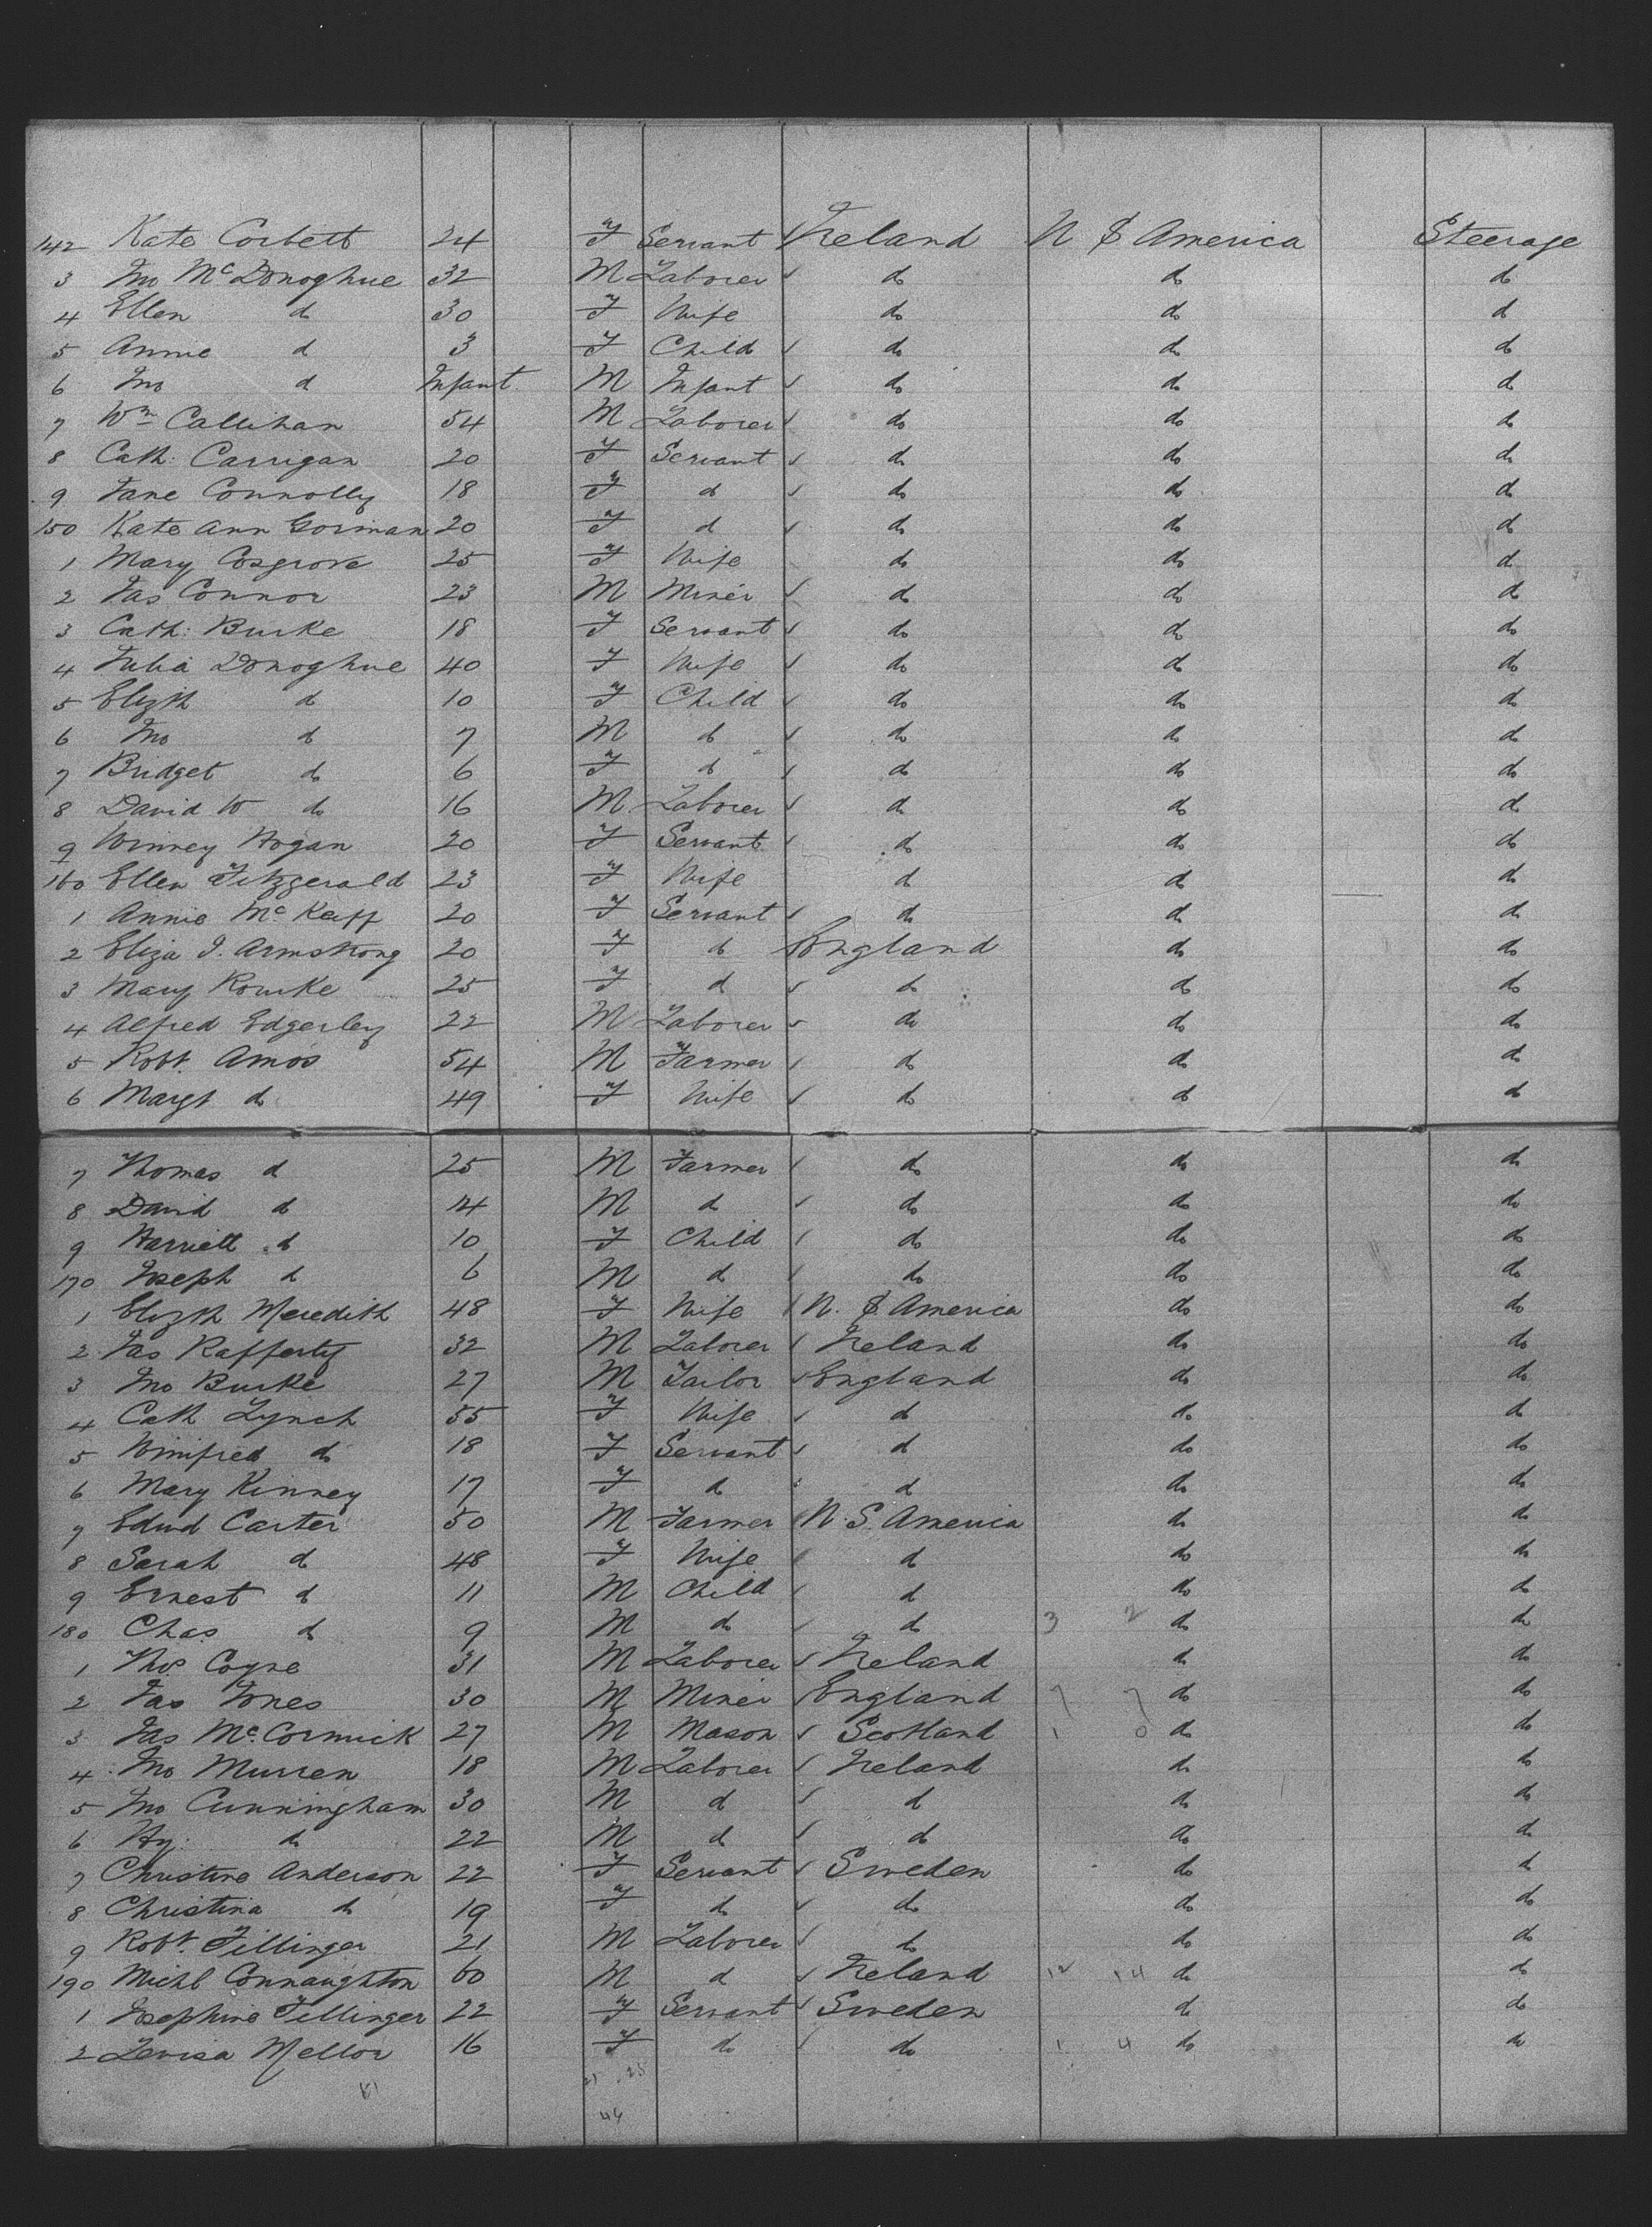 142 Kate Corbett 24 F Servant Ireland N S America Steerage
3 Jno McDonoghue 32 M Laborer do do do
4 Ellen do 30 F Wife do do do
5 Annie do 3 F Child do do do
6 Jno do Infant M Infant do do do
7 Wm Callihan 54 M Laborer do do do
8 Cath: Carrigan 20 F Servant do do do
9 Jane Connolly 18 F do do do do
150 Kate Ann Gorman 20 F do do do do
1 Mary Cosgrove 25 F Wife do do do
2 Jas Connor 23 M Miner do do do
3 Cath: Burke 18 F Servant do do do
4 Julia Donoghue 40 F Wife do do do
5 Elizth do 10 F Child do do do
6 Jno do 7 M do do do do
7 Bridget do 6 F do do do do
8 David W do 16 M Laborer do do do
9 Winney Hogan 20 F Servant do do do
160 Ellen Fitzgerald 23 F Wife do do do
1 Annie McKeiff 20 F Servant do do do
2 Eliza J. Armstrong 20 F do England do do
3 Mary Rourke 25 F do do do do
4 Alfred Edgerley 22 M Laborer do do do
5 Robt. Amos 54 M Farmer do do do
6 Margt do 49 F Wife do do do
7 Thomas do 25 M Farmer do do do
8 David do 14 M do do do do
9 Harriett do 10 F Child do do do
170 Joseph do 6 M do do do do
1 Elizth Meredith 48 F Wife N. S. America do do
2 Jas Rafferty 32 M Laborer Ireland do do
3 Jno Burke 27 M Tailor England do do
4 Cath Lynch 55 F Wife do do do
5 Winifred do 18 F Servant do do do
6 Mary Kinney 17 F do do do do
7 Edwd Carter 50 M Farmer N. S. America do do
8 Sarah do 48 F Wife do do do
9 Ernest do 11 M Child do do do
180 Chas do 9 M do do 3 2 do do
1 Thos Coyne 31 M Laborer Ireland do do
2 Jas Jones 30 M Miner England 7 7 do do
3 Jas McCormick 27 M Mason Scotland 1 0 do do
4 Jno Murren 18 M Laborer Ireland do do
5 Jno Cunningham 30 M do do do do
6 Hy: do 22 M do do do do
7 Christine Anderson 22 F Servant Sweden do do
8 Christina do 19 F do do do do
9 Robt. Fillinger 21 M Laborer do do do
190 Michl Connaughton 60 M do Ireland 12 14 do do
1 Josephine Fillinger 22 F Servant Sweden do do
2 Levisa Mellor 16 F do do 1 4 do do
21 25
46